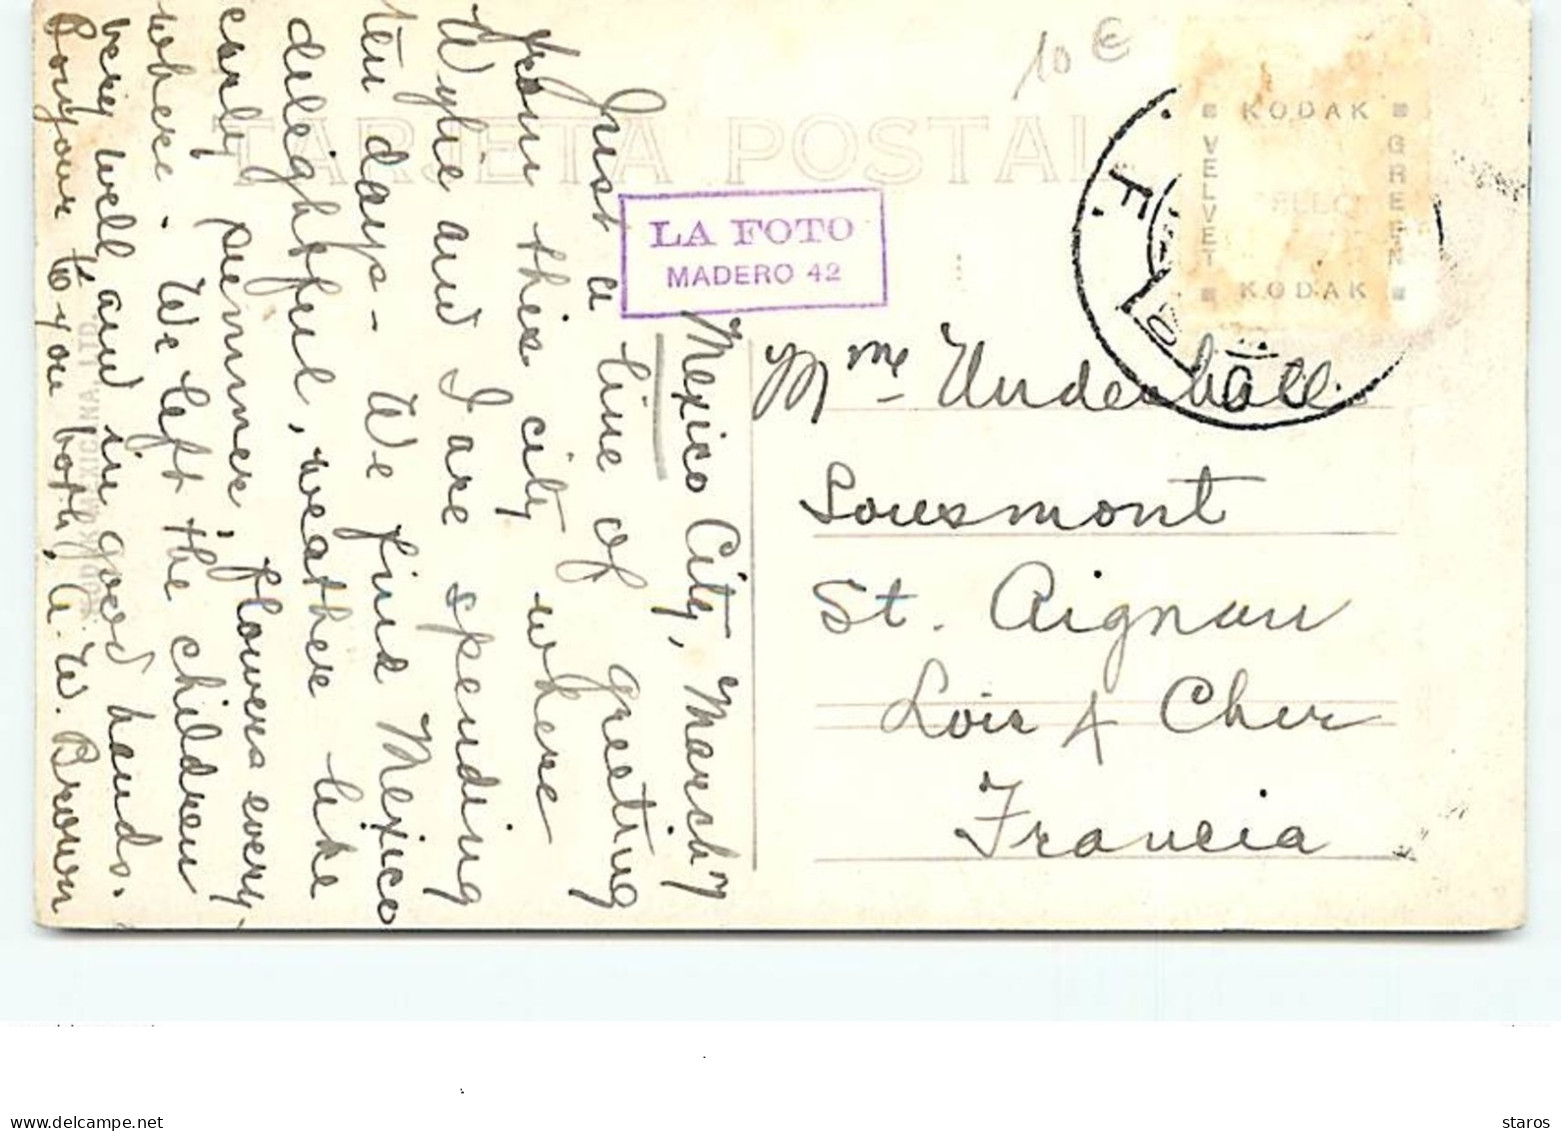 10 €
TARJETA POSTAL
KODAK
VELVET
GREEN
KODAK
LA FOTO
MADERO 42
KODAK MEXICANA, LTD.
Mexico City, March 7
Just a line of greeting
from this city where
Wylie and I are spending
ten days - We find Mexico
delightful, weather like
early summer, flowers every
where. We left the children
very well and in good hands.
Bonjour to you both, A. W. Brown
Mme Underhall
Souesmont
St. Aignan
Loir & Cher
Francia
https://www.delcampe.net
staros